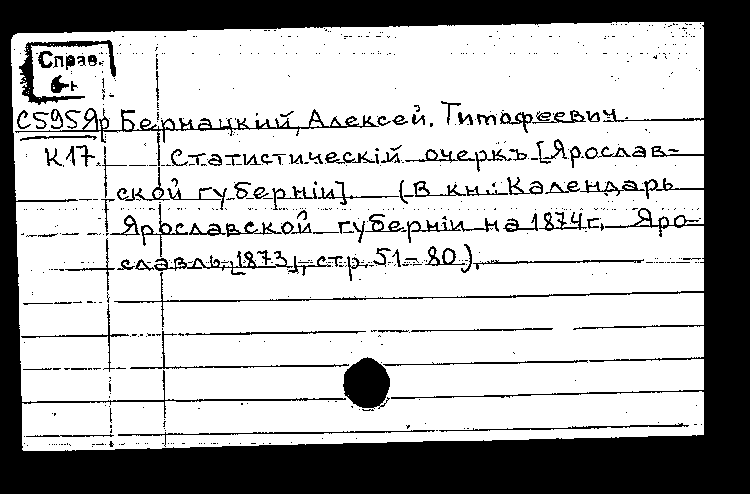 Справ.
С595Яр Бернацкий, Алексей. Тимофеевич.
К17. Статистическій очеркъ [Ярослав-
ской губерніи]. (В кн.: Календарь
Ярославской губерніи на 1874 г. Яро-
славль, [1873], стр. 51-80).